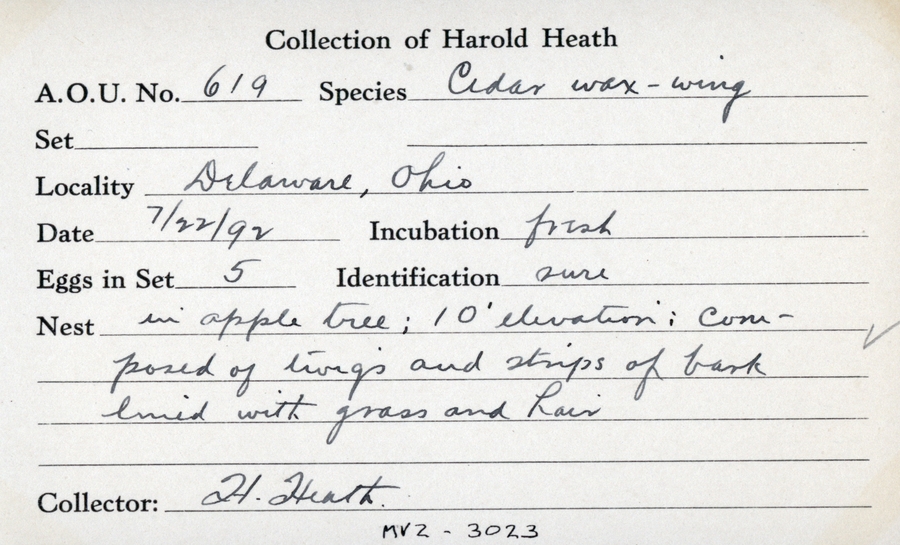 Collection of Harold Heath
A.O.U. No. 619 Species Cedar wax-wing
Set
Locality Delaware, Ohio
Date 7/22/92 Incubation fresh
Eggs in Set 5 Identification sure
Nest in apple tree; 10' elevation; com-
posed of twigs and strips of bark
lined with grass and hair
Collector: H. Heath.
MVZ - 3023